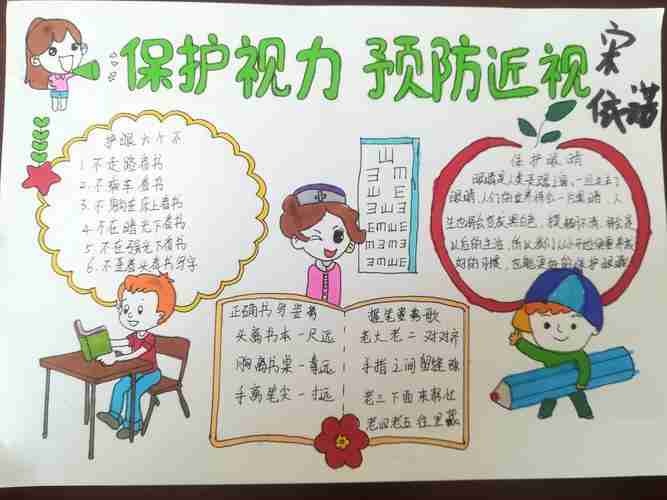 保护视力 预防近视
宋
依诺
护眼六个不
1.不走路看书
2.不乘车看书
3.不躺在床上看书
4.不在暗光下看书
5.不在强光下看书
6.不歪着头看书写字
保护眼睛
眼睛是人类
眼睛,人们的世界将会一片黑暗,人
生也将会变成黑白色
以后的生活,所以我们从小开始就要养成
好的习惯,也能更好的保护眼睛
正确书写姿势
头离书本一尺远
胸离书桌一拳远
手离笔尖一寸远
握笔姿势歌
老大老二对对齐
手指之间留缝隙
老三下面来托住
老四老五往里藏